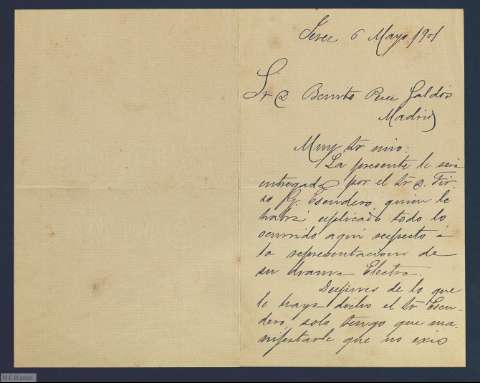 Jerez 6 Mayo 1901
Sr D. Benito Perez Galdós
Madrid
Muy Sr mio:
La presente le será
entregada por el Sr D. Tir-
so G. Escudero, quien le
habrá esplicado todo lo
ocurrido aquí respecto á
la representacion de
su drama Electra.
Despues de lo que
le haya dicho el Sr Escu-
dero, solo tengo que ma-
nifestarle que no exis